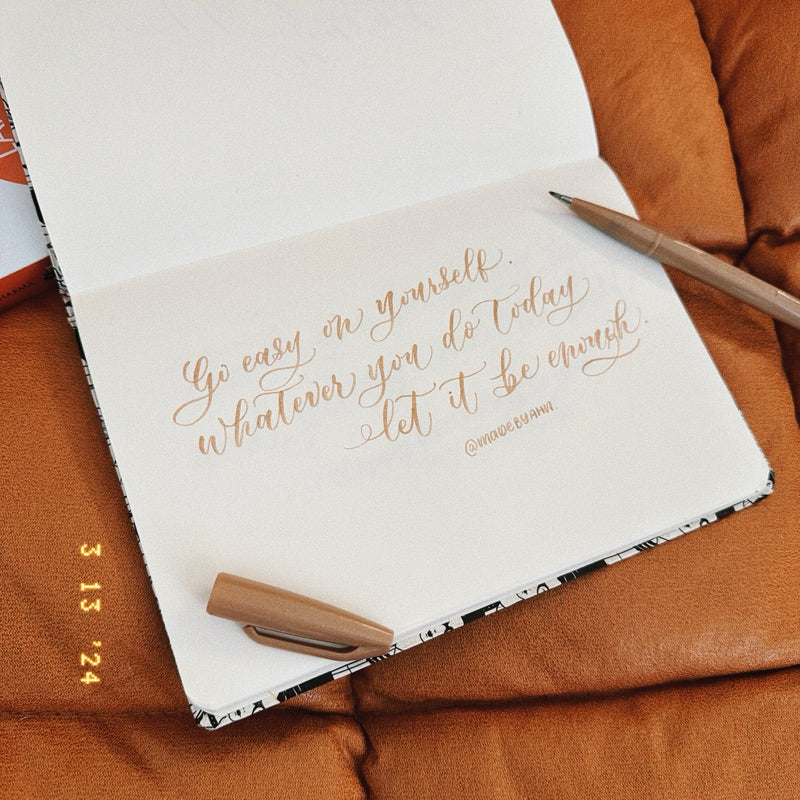 Go easy on yourself.
Whatever you do today
let it be enough.
@MADEBYAHN
3 13 '24